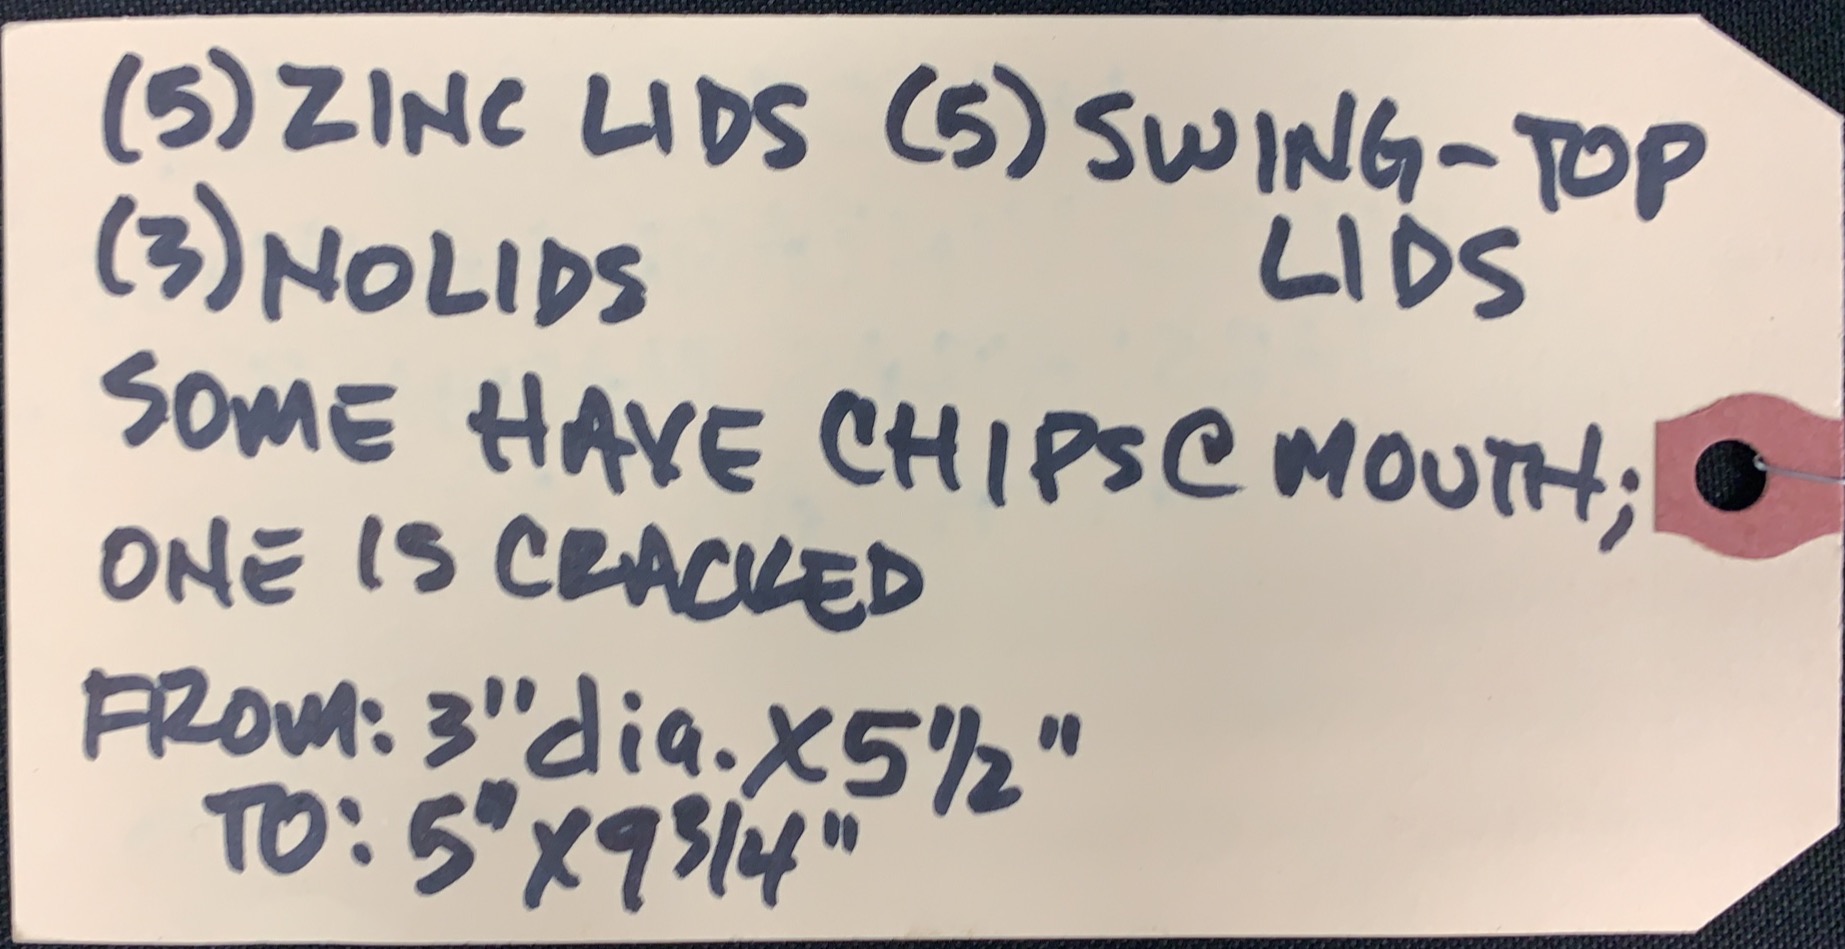 (5) ZINC LIDS (5) SWING-TOP LIDS
(3) NO LIDS
SOME HAVE CHIPS @ MOUTH;
ONE IS CRACKED
FROM: 3" dia. X 5 1/2"
TO: 5" X 9 3/4"